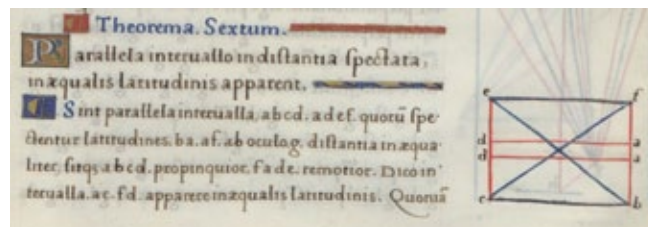 Theorema. Sextum.
Parallela interuallo in distantia spectata,
inæqualis latitudinis apparent.
Sint parallela interualla, abcd. adef. quorū spe
ctentur latitudines. ba. af. ab oculo g. distantia inæqua
liter, sitqs abcd. propinquior. fade. remotior. Dico in
terualla. ac. fd. apparere inæqualis latitudinis. Quoniā
e f
d a
d a
c b